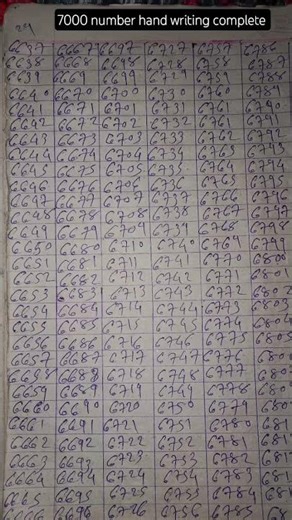 7000 number hand writing complete
6637 6667 6697 6727 6757 6786
6638 6668 6698 6728 6758 6787
6639 6669 6699 6729 6759 6788
6640 6670 6700 6730 6760 6789
6641 6671 6701 6731 6761 6790
6642 6672 6702 6732 6761 6791
6643 6673 6703 6733 6762 6792
6644 6674 6704 6734 6763 6793
6645 6675 6705 6735 6764 6794
6646 6676 6706 6736 6765 6795
6647 6677 6707 6737 6766 6796
6648 6678 6708 6738 6767 6797
6649 6679 6709 6739 6768 6798
6650 6680 6710 6740 6769 6799
6651 6681 6711 6741 6770 6800
6652 6682 6712 6742 6771 6801
6653 6683 6713 6743 6772 6802
6654 6684 6714 6744 6773 6803
6655 6685 6715 6745 6774 6804
6656 6686 6716 6746 6775 6805
6657 6687 6717 6747 6776
6658 6688 6718 6748 6777
6659 6689 6719 6749 6778
6660 6690 6720 6750 6779
6661 6691 6721 6751 6780
6662 6692 6722 6752 6781
6663 6693 6723 6753 6782
6664 6694 6724 6754 6783
6665 6695 6725 6755 6784
6666 6696 6726 6756 6785